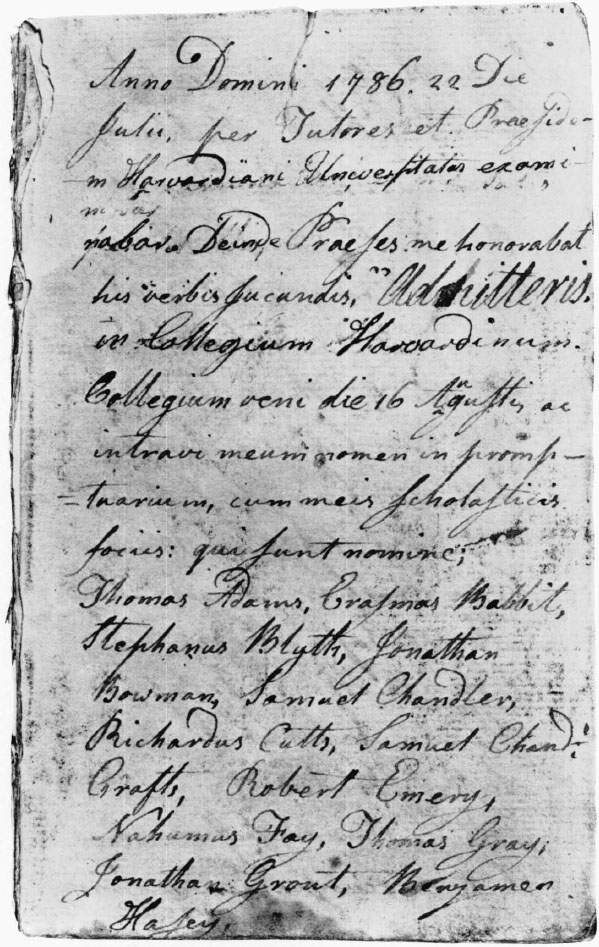 Anno Domini 1786. 22 Die
Julii, per Tutores et Praeside-
m Harvardiani Universitatis exami-
nabar. Deinde Praeses me honorabat
his verbis jucundis, "Admitteris.
in Collegium Harvardinum.
Collegium veni die 16 Augustis ac
intravi meum nomen in promp-
=tuarium, cum meis scholasticis
sociis: qui sunt nomine;
Thomas Adams, Erasmas Babbit,
Stephanus Blyth, Jonathan
Bowman, Samuel Chandler,
Richardus Cutts, Samuel Chand:
Crafts, Robert Emery,
Nahumus Fay, Thomas Gray,
Jonathan Grout, Benjamen
Hasey.